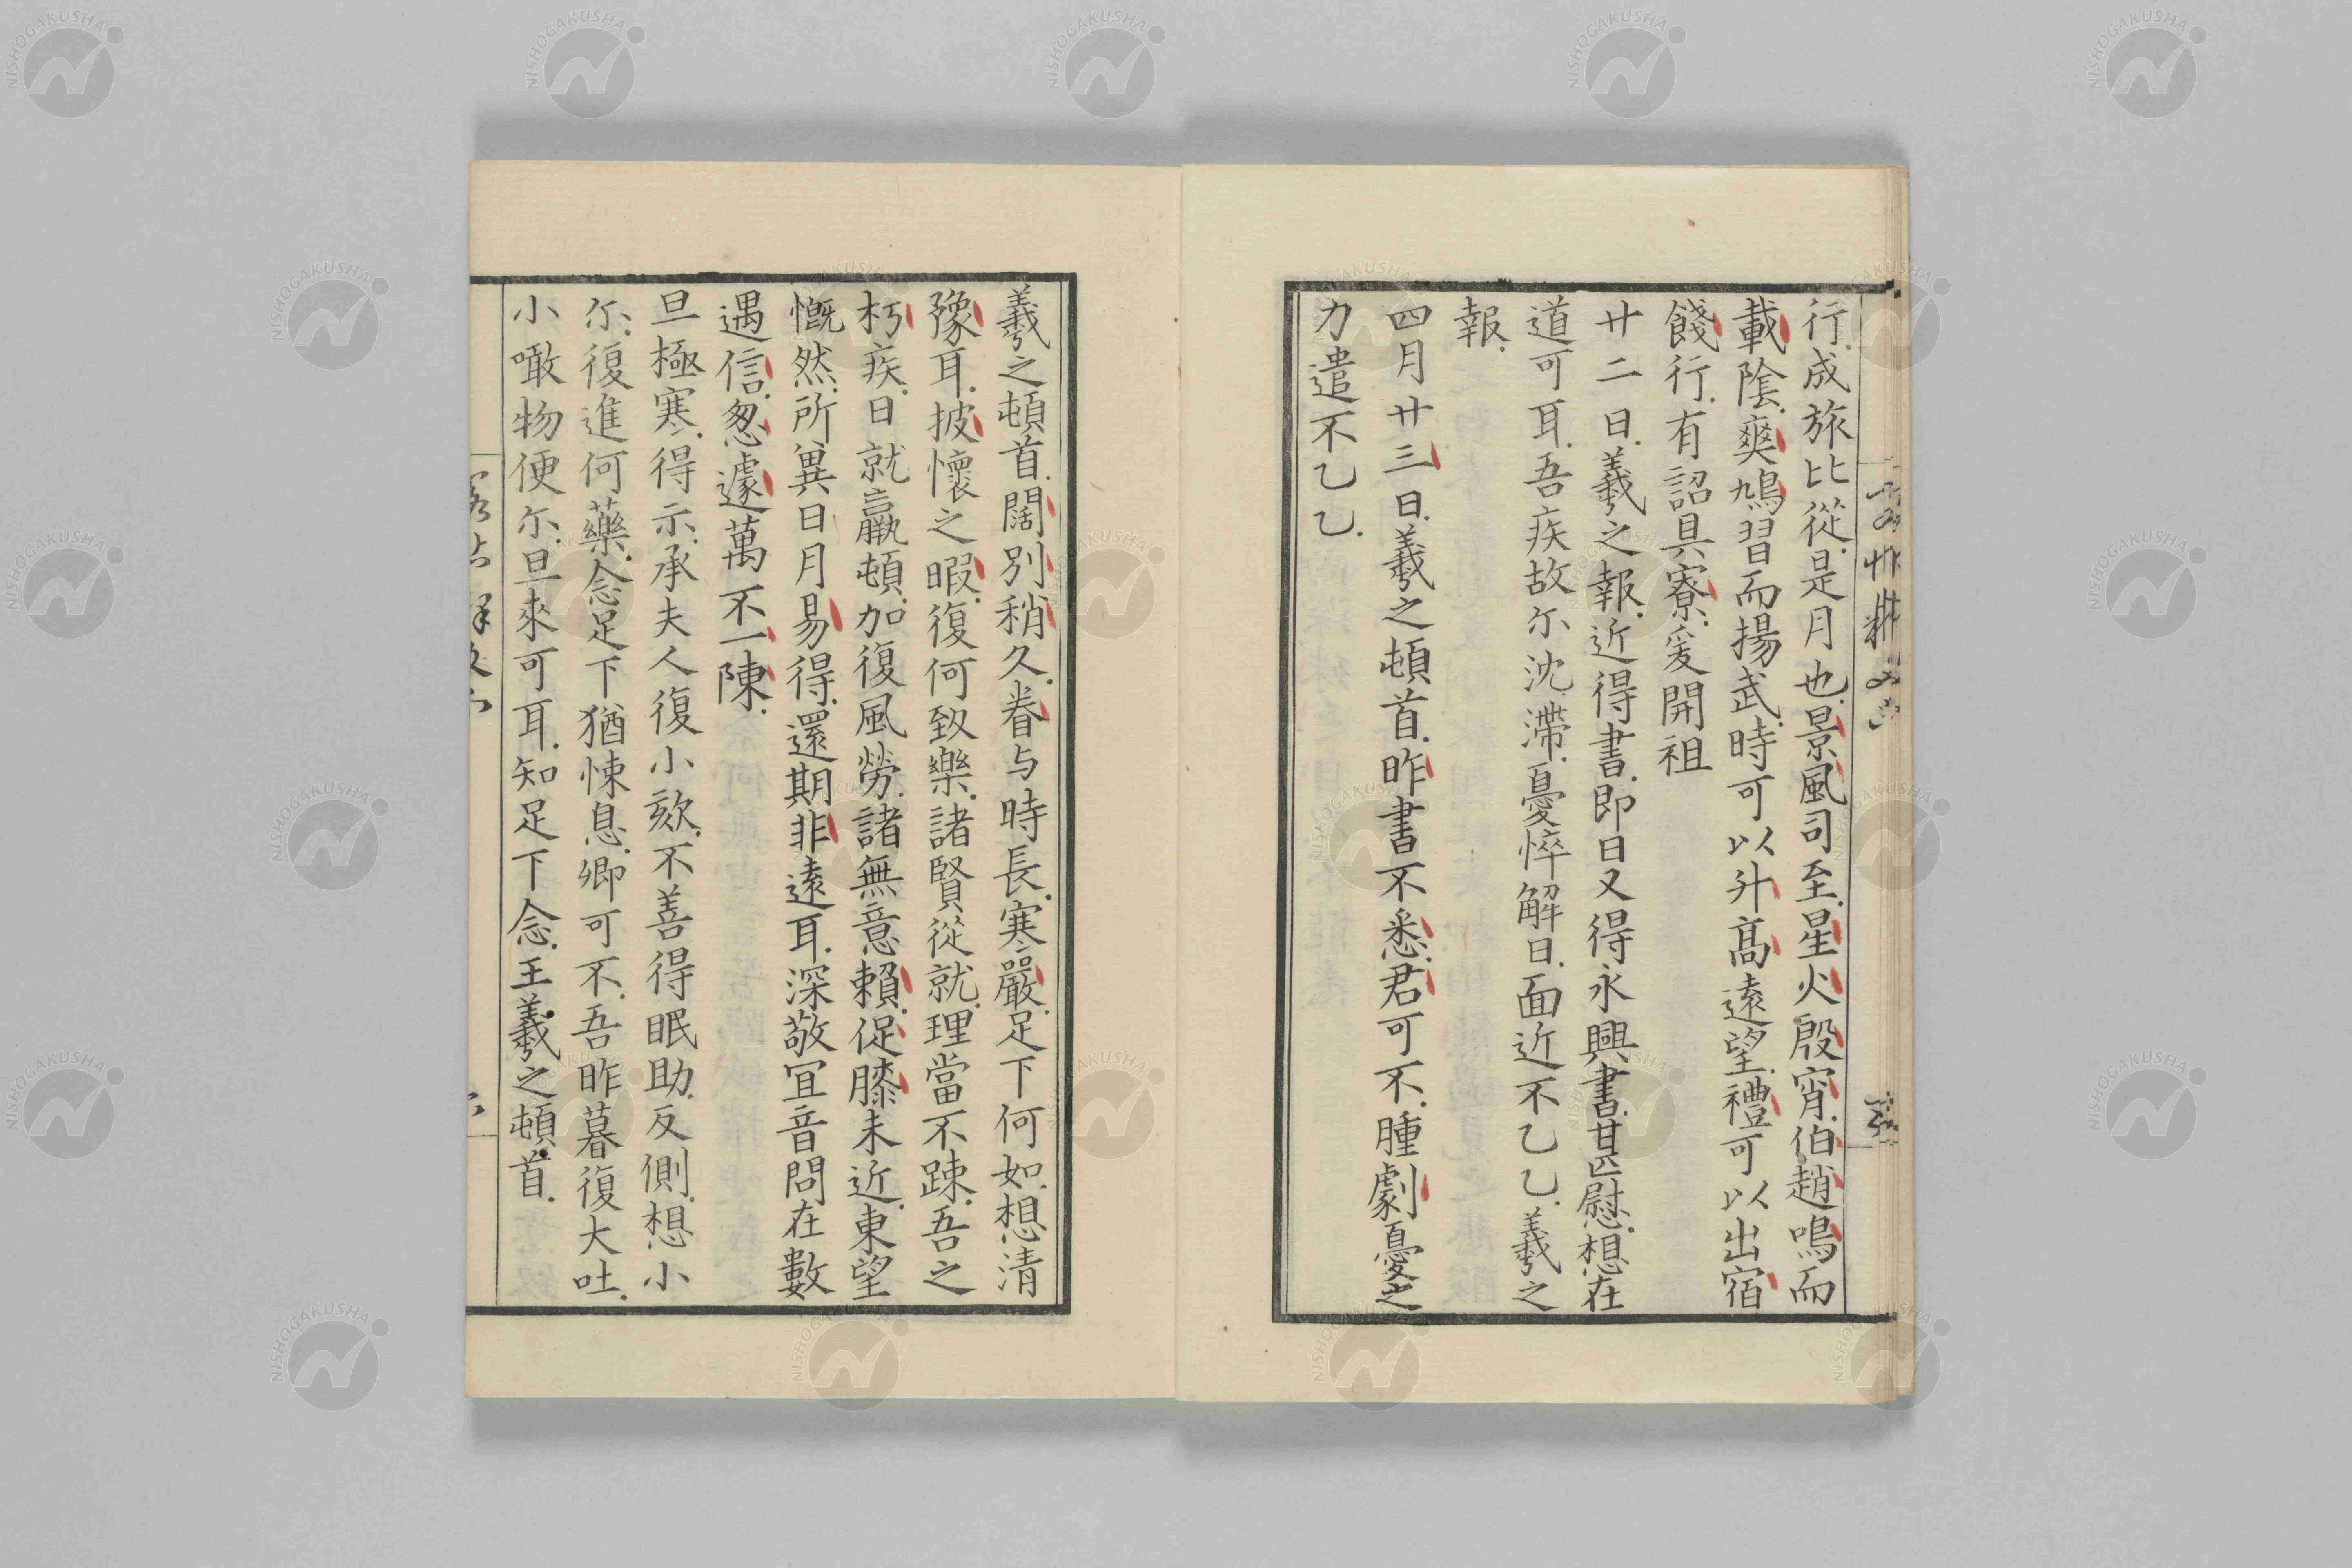 行成旅比從是月也景風司至星火殷宵伯趙鳴而
載陰爽鳩習而揚武時可以升髙遠望禮可以出宿
餞行有詔具寮爰開祖
廿二日羲之報近得書即日又得永興書甚慰想在
道可耳吾疾故尓沈滯憂悴解日面近不乙乙羲之
報
四月廿三日羲之頓首昨書不悉君可不腫劇憂之
力遣不乙乙
羲之頓首闊別稍久眷与時長寒嚴足下何如想清
豫耳披懷之暇復何致樂諸賢從就理當不踈吾之
朽疾日就羸頓加復風勞諸無意賴促膝未近東望
慨然所異日月易得還期非遠耳深敬宜音問在數
遇信怱遽萬不一陳
旦極寒得示承夫人復小欬不善得眠助反側想小
尓復進何藥念足下猶悚息卿可不吾昨暮復大吐
小噉物便尓旦來可耳知足下念王羲之頓首
NISHOGAKUSHA